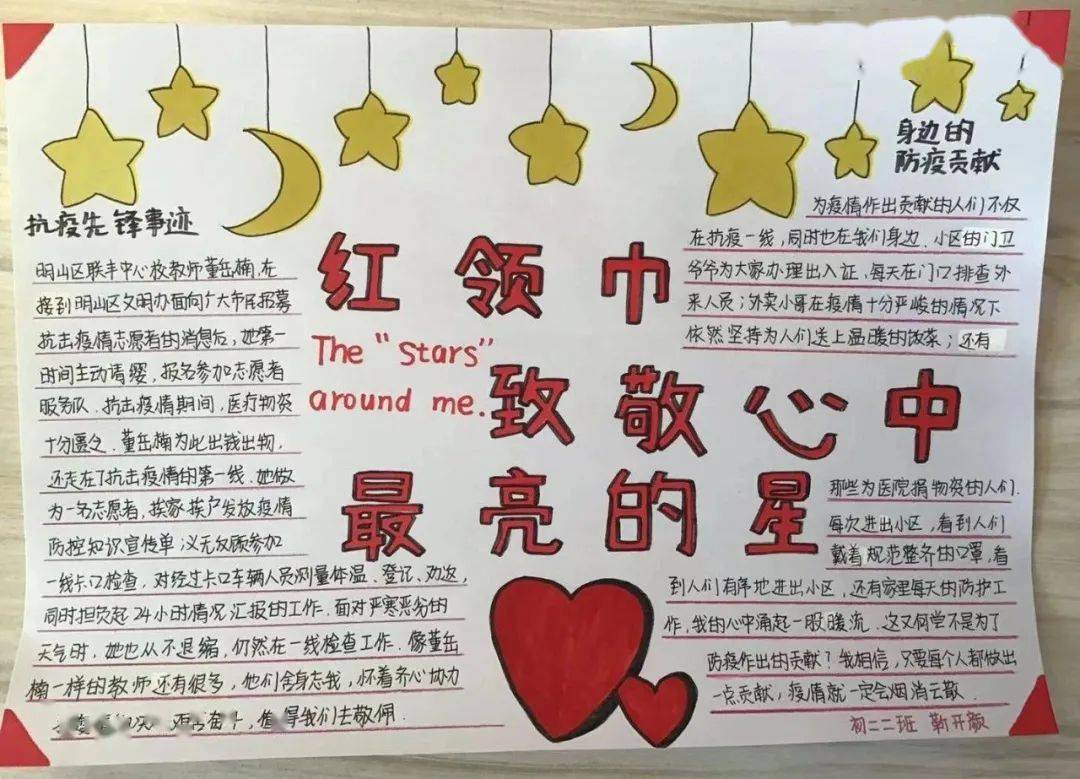 抗疫先锋事迹
明山区联丰中心校教师董岳楠,在
接到明山区文明办面向广大市民招募
抗击疫情志愿者的消息后,她第一
时间主动请缨,报名参加志愿者
服务队.抗击疫情期间,医疗物资
十分匮乏.董岳楠为此出钱出物.
还走在了抗击疫情的第一线.她做
为一名志愿者,挨家挨户发放疫情
防控知识宣传单.义无反顾参加
一线卡口检查,对经过卡口车辆人员测量体温、登记、劝返,
同时担负起24小时情况汇报的工作.面对严寒恶劣的
天气时.她也从不退缩,仍然在一线检查工作.像董岳
楠一样的教师还有很多,他们舍身忘我,怀着齐心协力
值得我们去敬佩.
红领巾
The "Stars"
around me.
致敬心中
最亮的星
身边的
防疫贡献
为疫情作出贡献的人们不仅
在抗疫一线,同时也在我们身边.小区的门卫
爷爷为大家办理出入证,每天在门口排查外
来人员;外卖小哥在疫情十分严峻的情况下
依然坚持为人们送上温暖的饭菜;还有
那些为医院捐物资的人们.
每次进出小区,看到人们
戴着规范整齐的口罩,看
到人们有序地进出小区,还有家里每天的防护工
作,我的心中涌起一股暖流.这又何尝不是为了
防疫作出的贡献?我相信,只要每个人都做出
一点贡献,疫情就一定会烟消云散.
初二二班 靳开